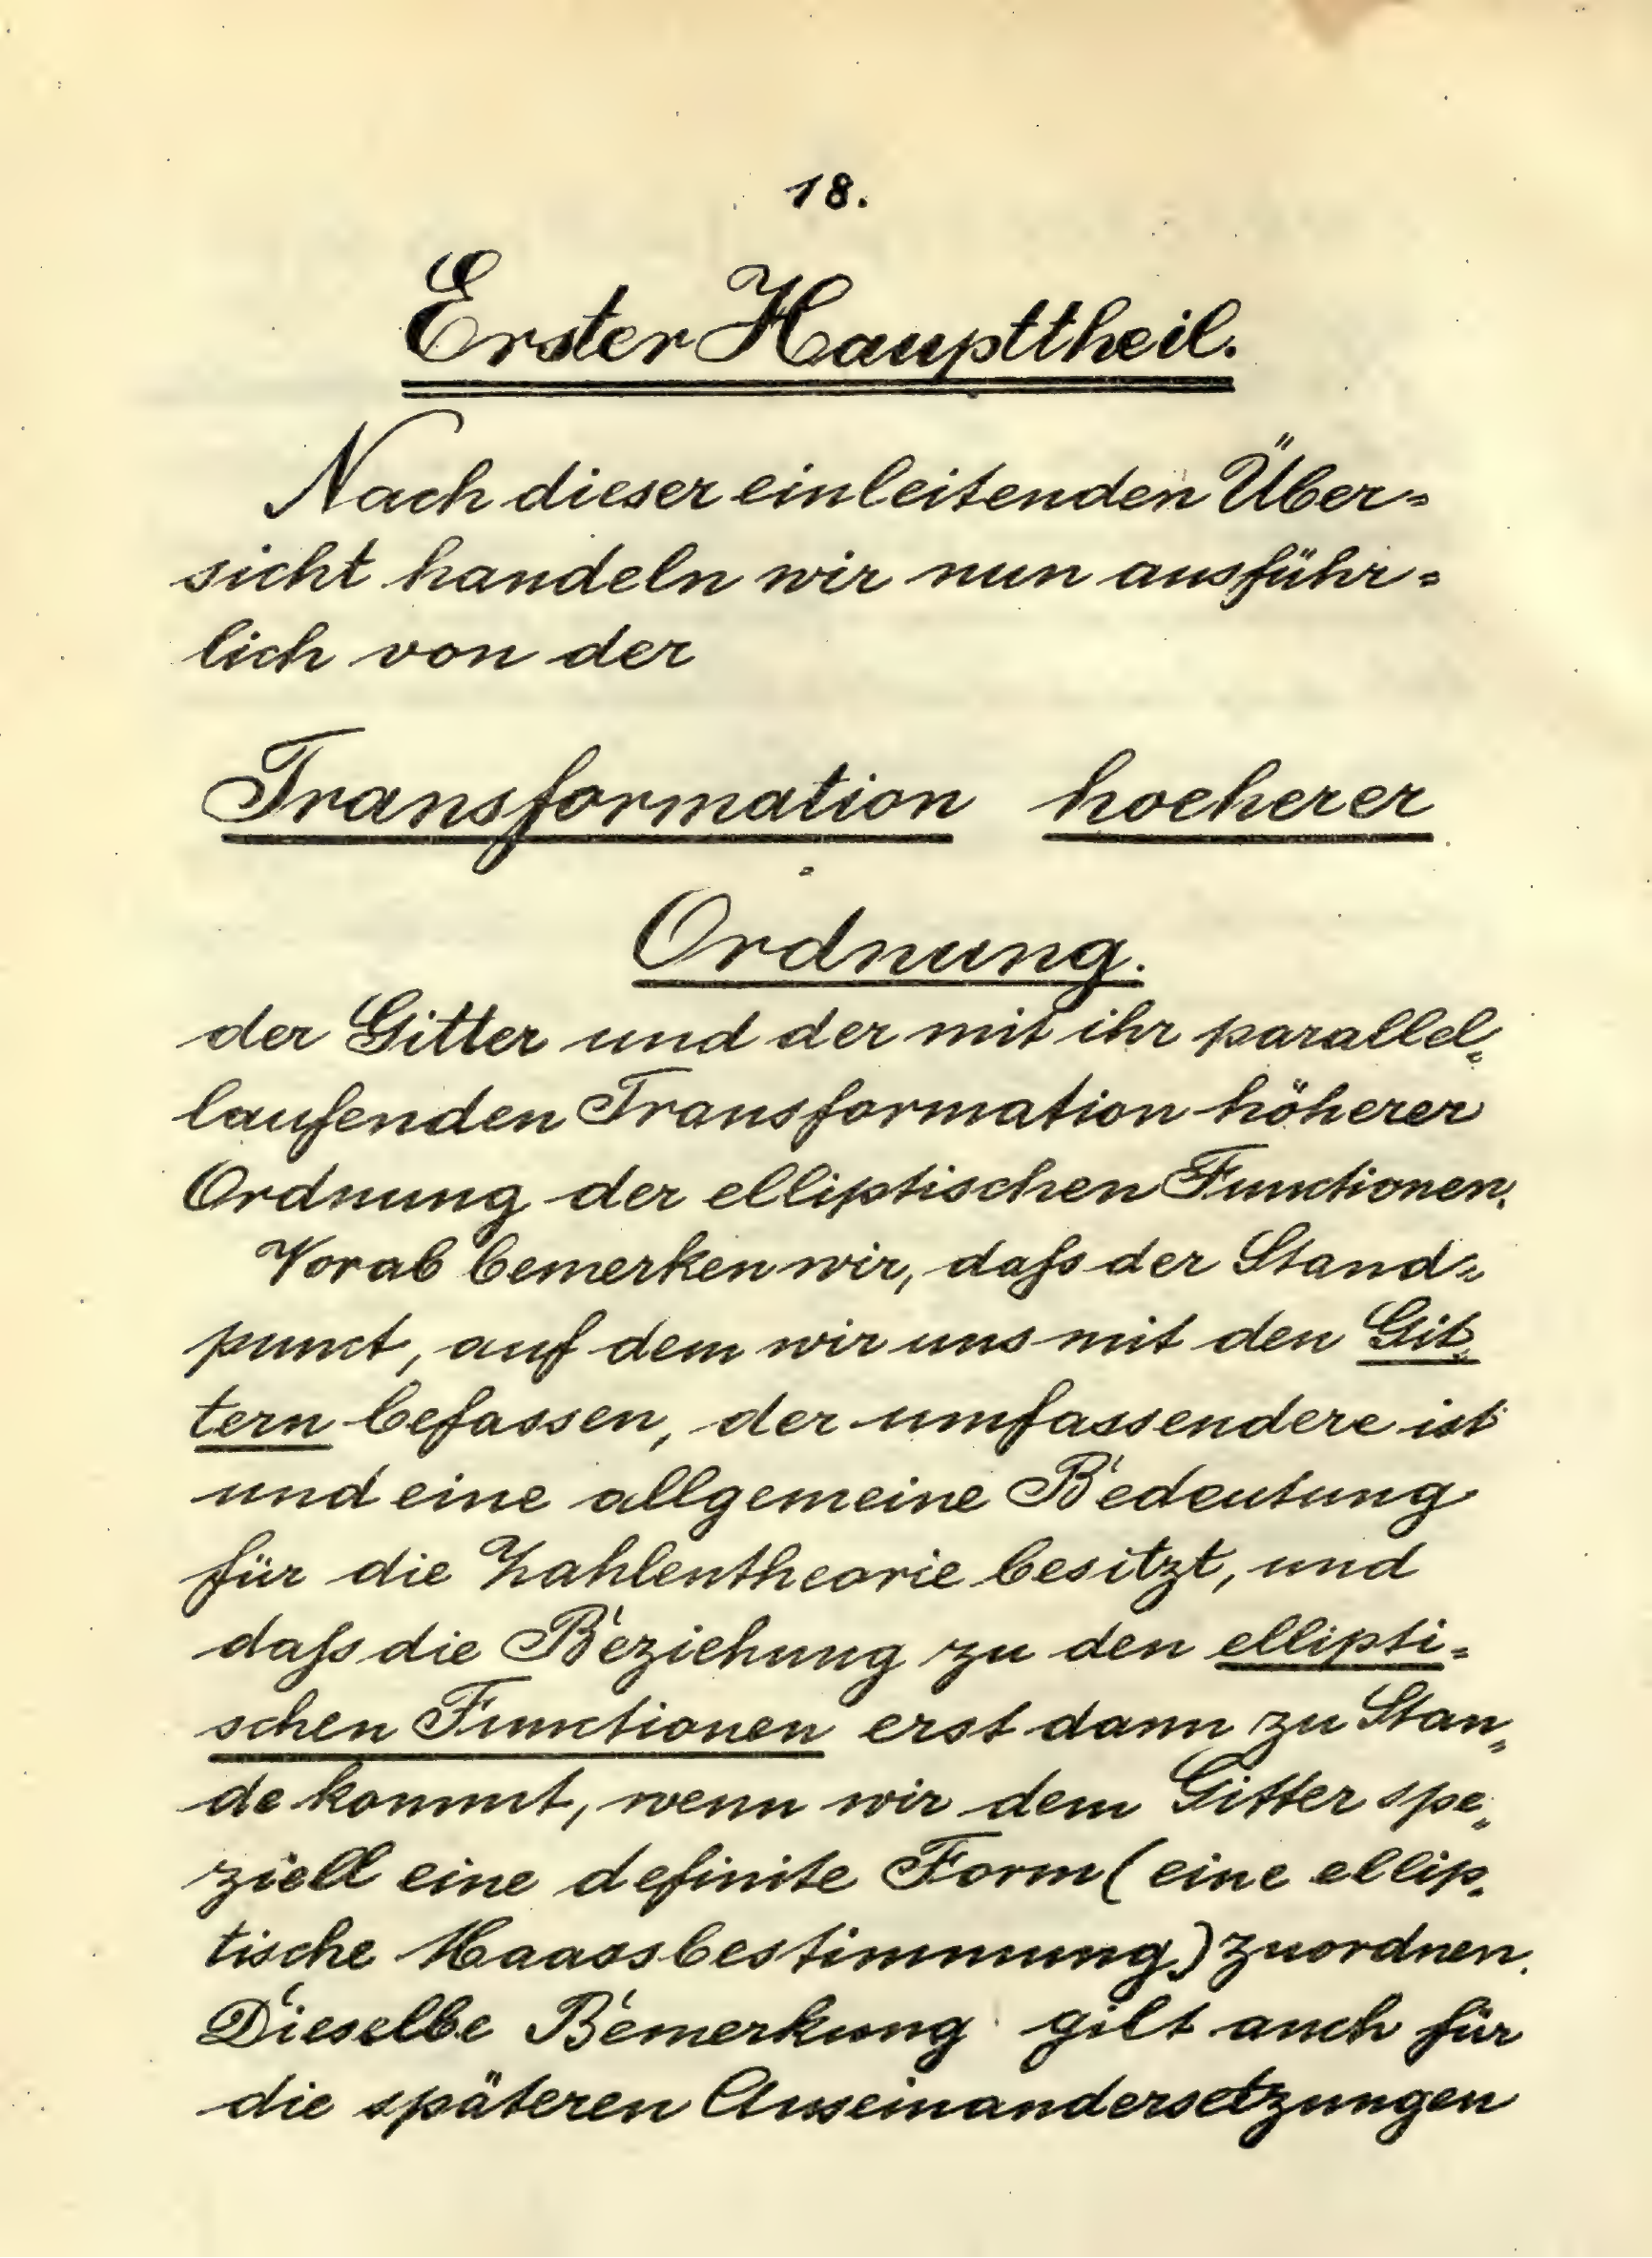 18.
Erster Haupttheil.
Nach dieser einleitenden Über=
sicht handeln wir nun ausführ=
lich von der
Transformation hoeherer
Ordnung.
der Gitter und der mit ihr parallel=
laufenden Transformation höherer
Ordnung der elliptischen Functionen.
Vorab bemerken wir, daſs der Stand=
punct, auf dem wir uns mit den Git=
tern befassen, der umfassendere ist
und eine allgemeine Bedeutung
für die Zahlentheorie besitzt, und
daſs die Beziehung zu den ellipti=
schen Functionen erst dann zu Stan=
de kommt, wenn wir dem Gitter spe=
ziell eine definite Form (eine ellip=
tische Maassbestimmung) zuordnen.
Dieselbe Bemerkung gilt auch für
die späteren Auseinandersetzungen